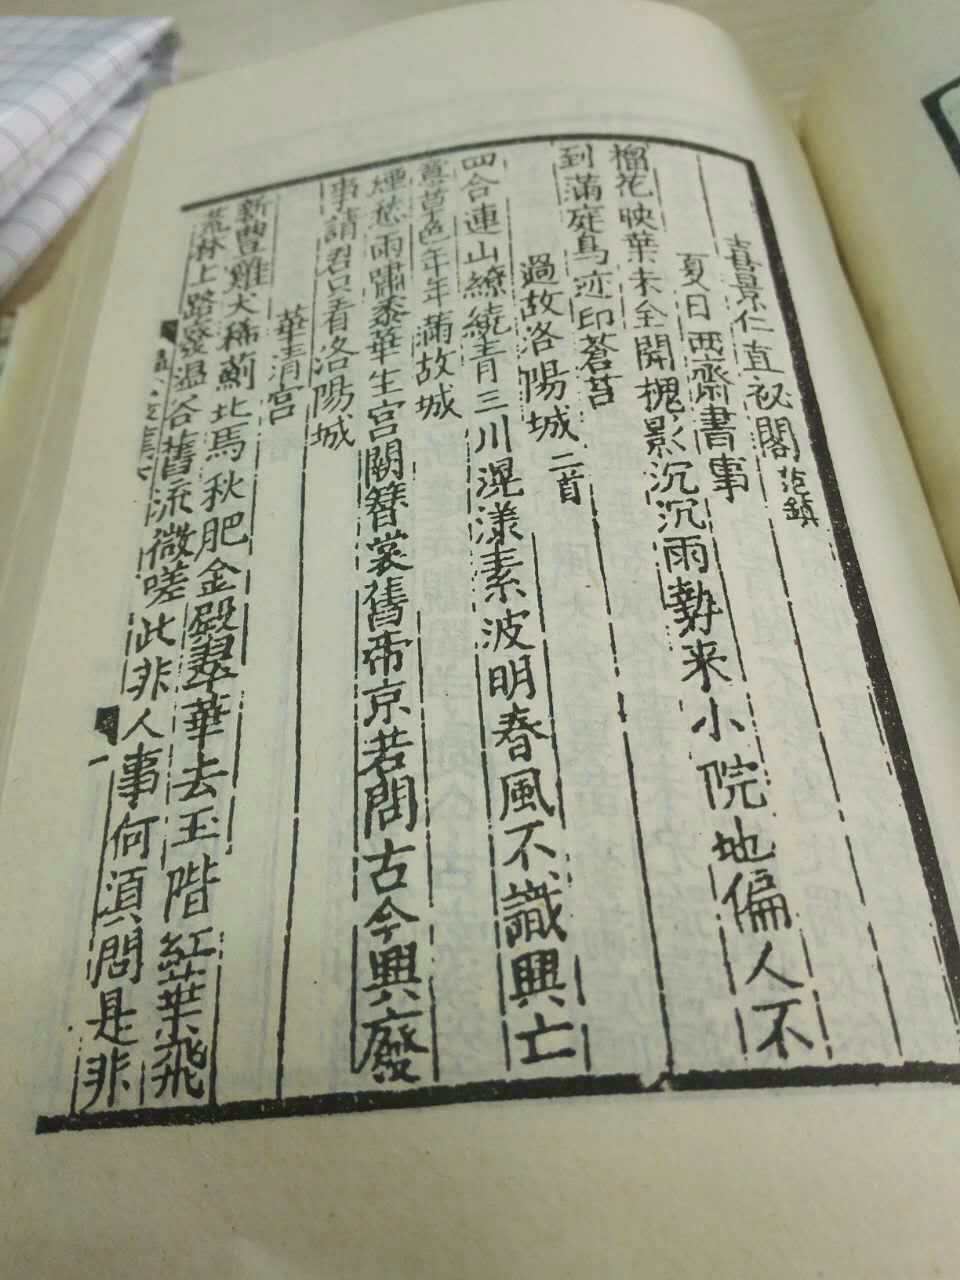 喜景仁直祕閣 范鎮
夏日西齋書事
榴花映葉未全開槐影沉沉雨勢来小院地偏人不
到滿庭鳥迹印蒼苔
過故洛陽城二首
四合連山繚繞青三川滉漾素波明春風不識興亡
意草色年年滿故城
煙愁雨嘯黍華生宮闕簪裳舊帝京若問古今興廢
事請君只看洛陽城
華清宮
新豐雞犬稀薊北馬秋肥金殿翠華去玉階紅葉飛
荒林上路發温谷舊流微嗟此非人事何須問是非